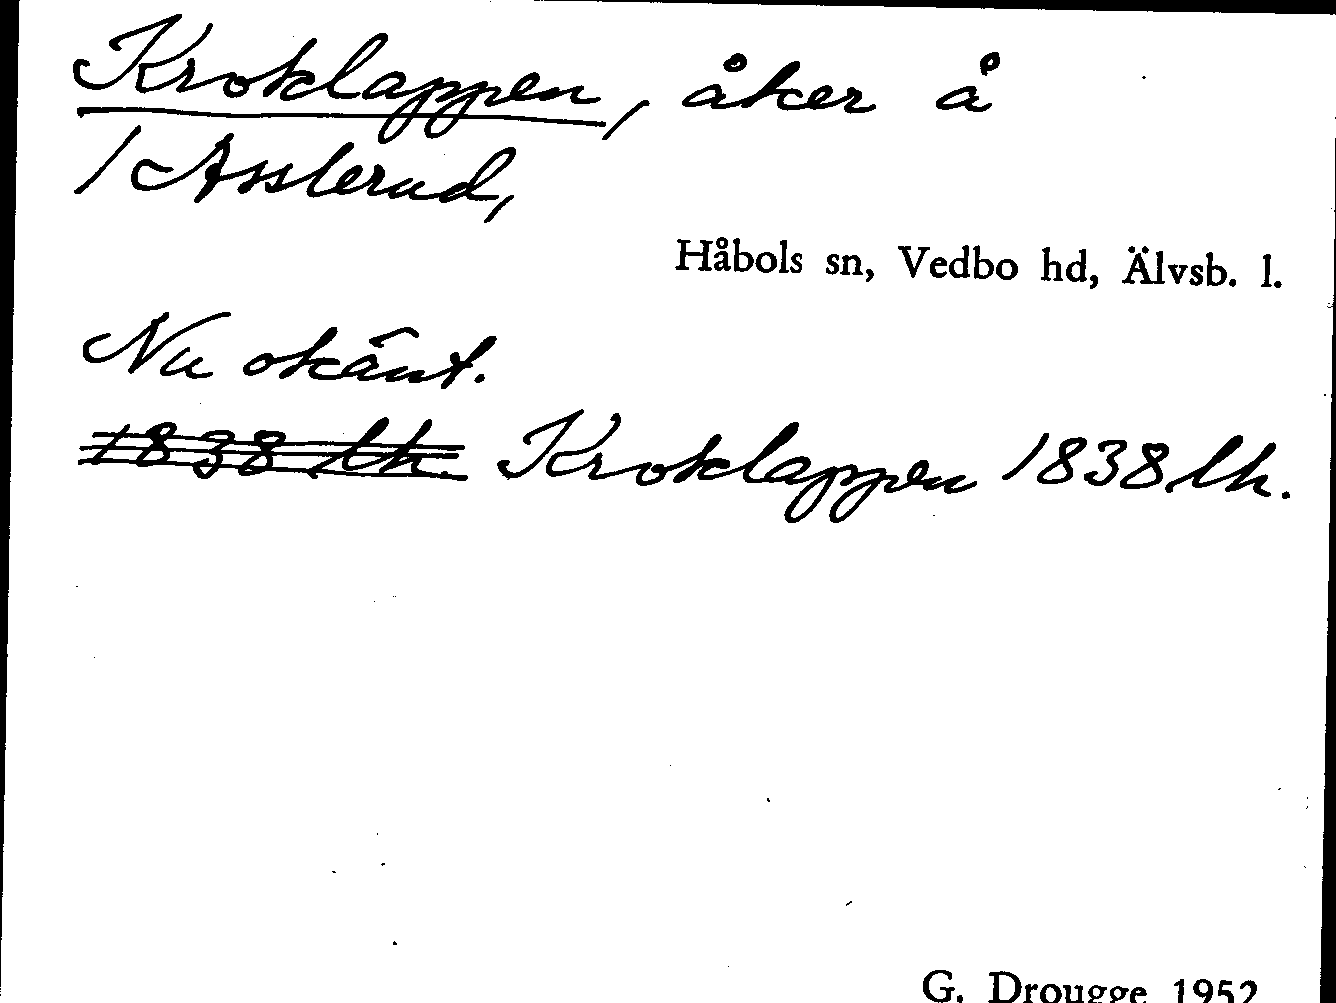 Kroklappen, åker å
1 Asslerud,
Håbols sn, Vedbo hd, Älvsb. l.
Nu okänt.
1838 lh. Kroklappen 1838 lh.
G. Drougge 1952